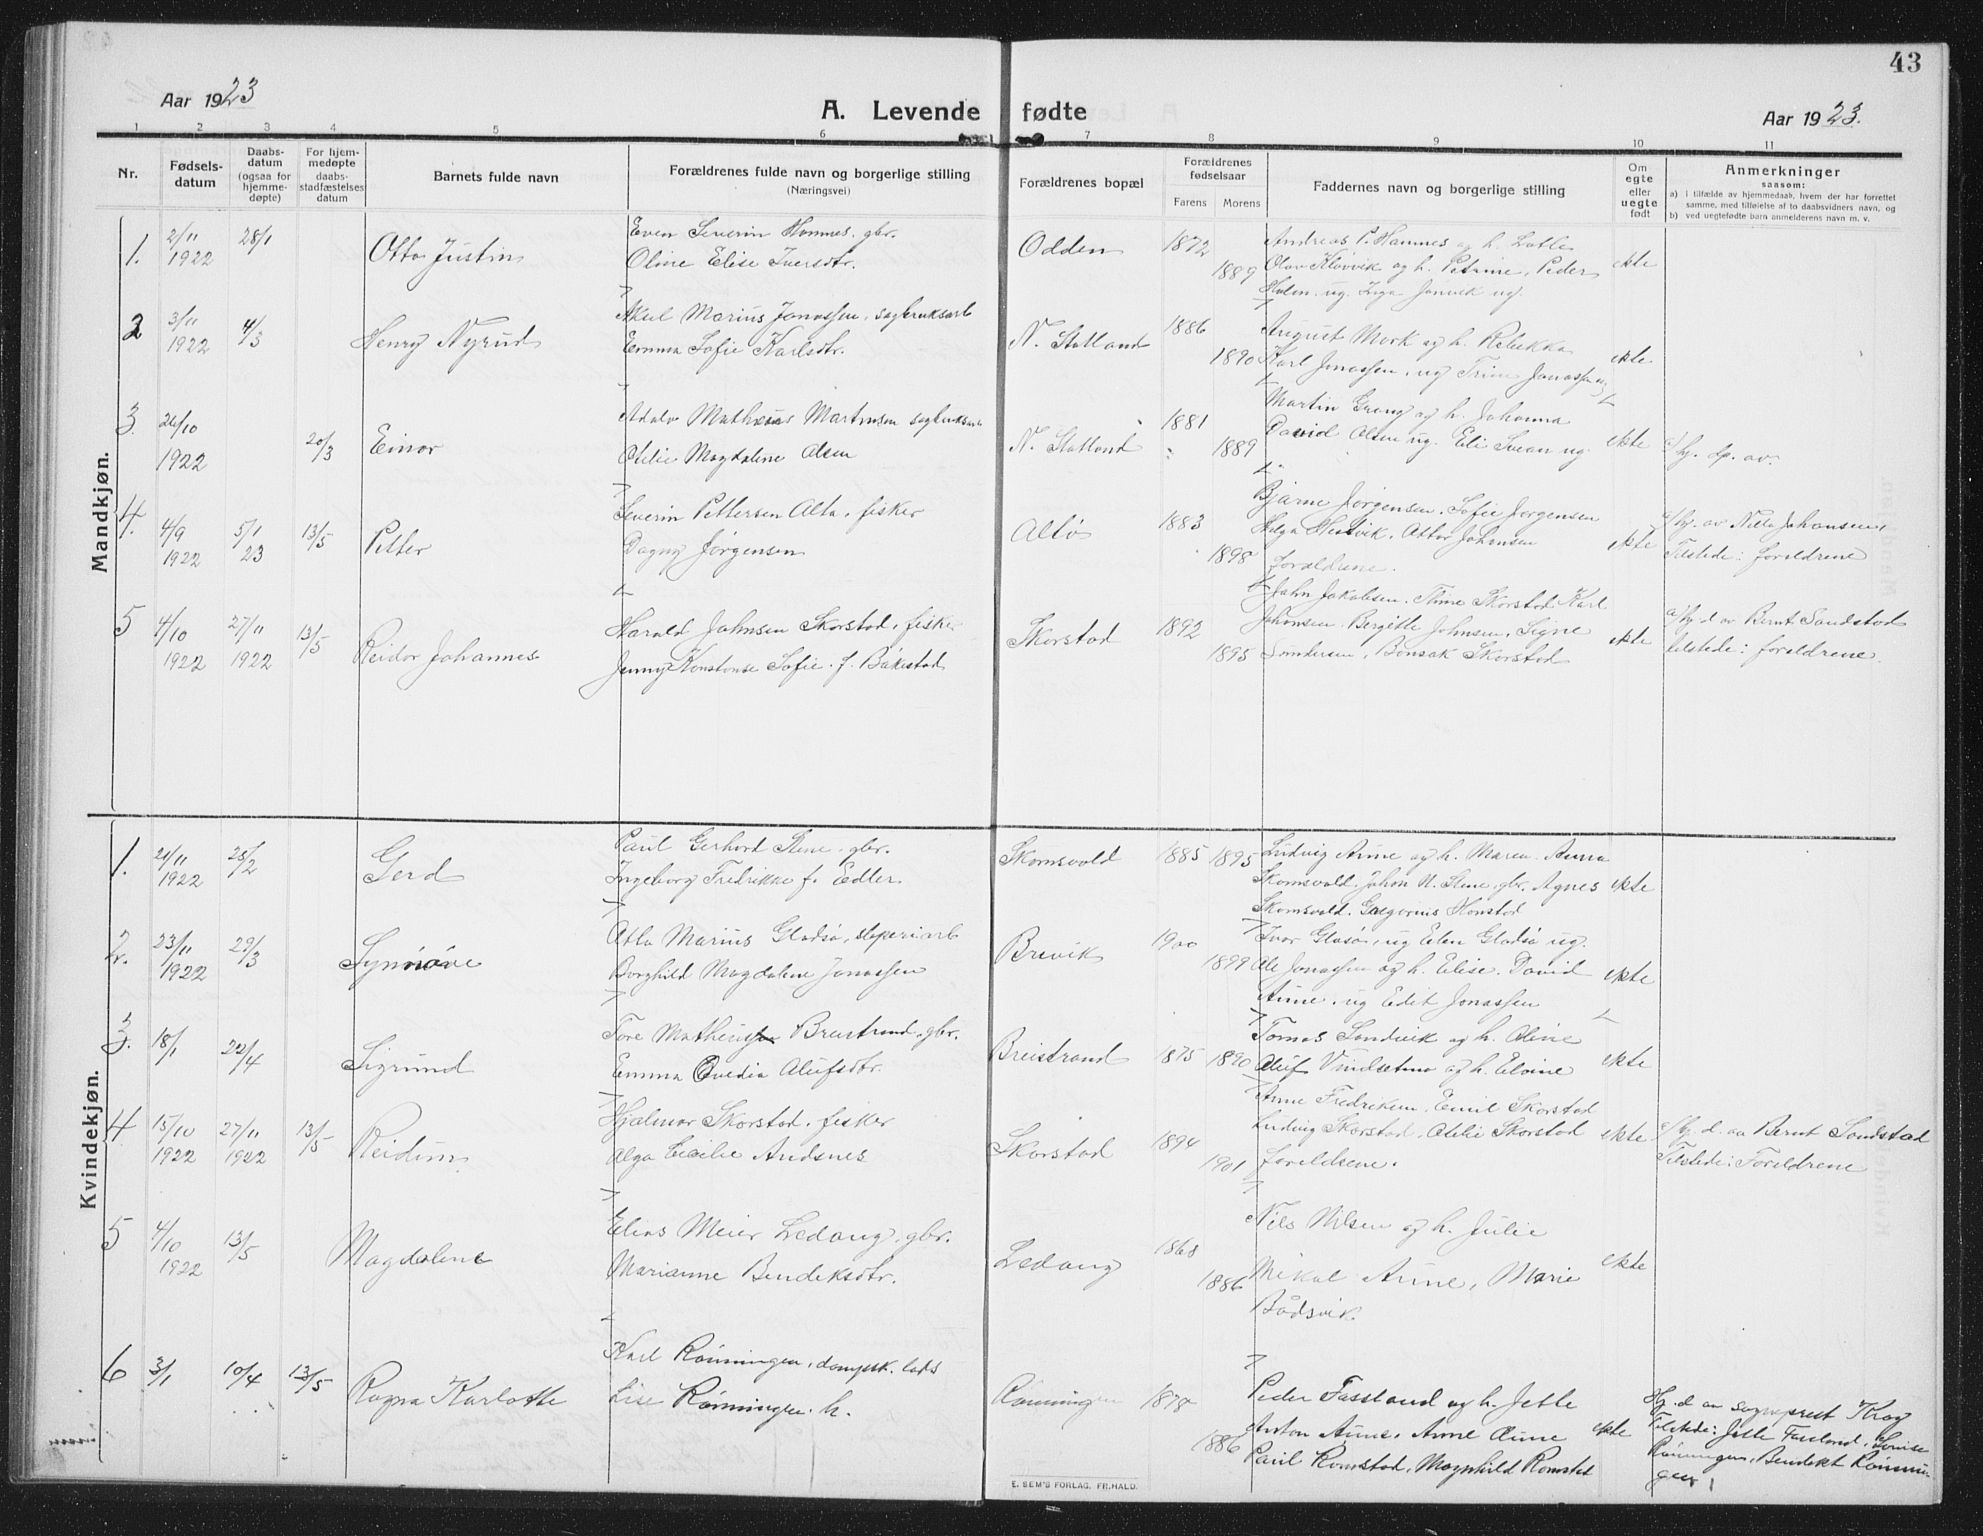 43
Aar 1923
A. Levende fødte
Aar 1923.
1 2 3 4 5 6 7 8 9 10 11
Nr.
Fødsels-
datum
Daabs-
datum
(ogsaa for
hjemme-
døpte)
For hjem-
medøpte
daabs-
stadfæstelses
datum
Barnets fulde navn
Forældrenes fulde navn og borgerlige stilling
(Næringsvei)
Forældrenes bopæl
Forældrenes
fødselsaar
Farens Morens
Faddernes navn og borgerlige stilling
Om
egte
eller
uegte
født
Anmerkninger
saasom:
a) i tilfælde av hjemmedaab, hvem der har forrettet
samme, med tilføielse af to daabsvidners navn, og
b) ved uegtefødte barn anmelderens navn m. v.
Mandkjøn.
1. 2/11 1922 28/1 Otto Justin
Even Severin Homnes. gbr.
Oline Elise Iversdtr.
Odden 1872 1889
Andreas P. Hamnes og h. Lotte
Olav Kløvvik og h. Petrine, Peder
ug. Inga ug.
ekte
2 3/11 1922 4/3 Henry Nyrud
Aksel Marius Jonassen, sagbruksarb
Emma Sofie Karlsdtr.
N. Statland 1886 1890
August Mork og h. Rebekka
Karl Jonassen, ug Trine Jonassen ug
ekte
3. 26/10 1922 20/3 Einar
Adolv Matheus Martinsen sagbruksarb
Otilie Magdalene Olsen
N. Statland 1881 1889
Martin Grong og h. Johanna
David Olsen ug. Eli Svean ug.
ekte
a) hj. dp. av.
4. 4/9 1922 5/1 23 13/5 Petter
Severin Pettersen Altø, fisker
Dagny Jørgensen
Altø 1883 1898
Bjarne Jørgensen, Sofie Jørgensen
Helga Hestvik, Ottar Johansen
foreldrene.
ekte
a) hj. av Nils Johansen,
Tilstede: foreldrene
5 4/10 1922 27/11 1922 13/5 Reidar Johannes
Harald Johnsen Skorstad, fisker
Jenny Konstanse Sofie. f. Båkstad
Skorstad 1892 1895
John Jakobsen. Trine Skorstad. Karl
Johansen. Bergitte Johnsen, Signe
Bonsak Skorstad
ekte
a) hj. d av Bernt Sandstad
tilstede: foreldrene.
Kvindekjøn.
1. 21/11 1922 25/2 Gerd
Paul Gerhard Stene. gbr.
Ingeborg Fredrikke f. Edler
Skomsvold 1885 1895
Ludvig Aune og h. Maren. Anna
Skomsvold. Johan N. Stene, gbr. Agnes
Skomsvold. Gregorius Honstad
ekte
2. 23/11 1922 29/3 Synnøve
Otto Marius Gladsø, sliperiarb
Borghild Magdalene Jonassen
Brevik 1900 1899
Ivar Glasø, ug Elen Gladsø ug.
Ole Jonassen og h. Elise. David
Aune. ug Edit Jonassen
ekte
3. 18/1 22/4 Sigrund
Tore Breistrand, gbr.
Emma Ovedia Olufsdtr.
Breistrand 1875 1890
Tomas Sandvik og h. Oline
Oluf Vindsetmo og h. Elvine
ekte
4. 15/10 1922 27/11 1922 13/5 Reidun
Hjalmar Skorstad, fisker
Olga Cecilie Andsnes
Skorstad 1894 1901
Anne Fredriksen, Emil Skorstad
Ludvig Skorstad, Otilie Skorstad
foreldrene.
ekte
a) hj. d. av Bernt Sandstad
Tilstede: Foreldrene
5 4/10 1922 13/5 Magdalene
Elias Meier Ledang, gbr.
Marianne Bendiksdtr.
Ledang 1868 1886
Nils Nilsen og h. Julie
Mikal Aune, Marie
Bådsvik.
ekte
6 3/1 10/4 13/5 Ragna Karlotte
Karl Rønningen, dampsk. lods
Lise Rønningen. h.
Rønningen 1878 1886
Peder Fassland og h. Jette
Anton Aune, Anne Aune
Paul Romstad, Magnhild Romstad
ekte
Hj. d av sogneprest Krog
Tilstede: Jette Fassland, Lovise
Rønningen, Bendikt Rønnin-
gen
E. SEM'S FORLAG, FR.HALD.